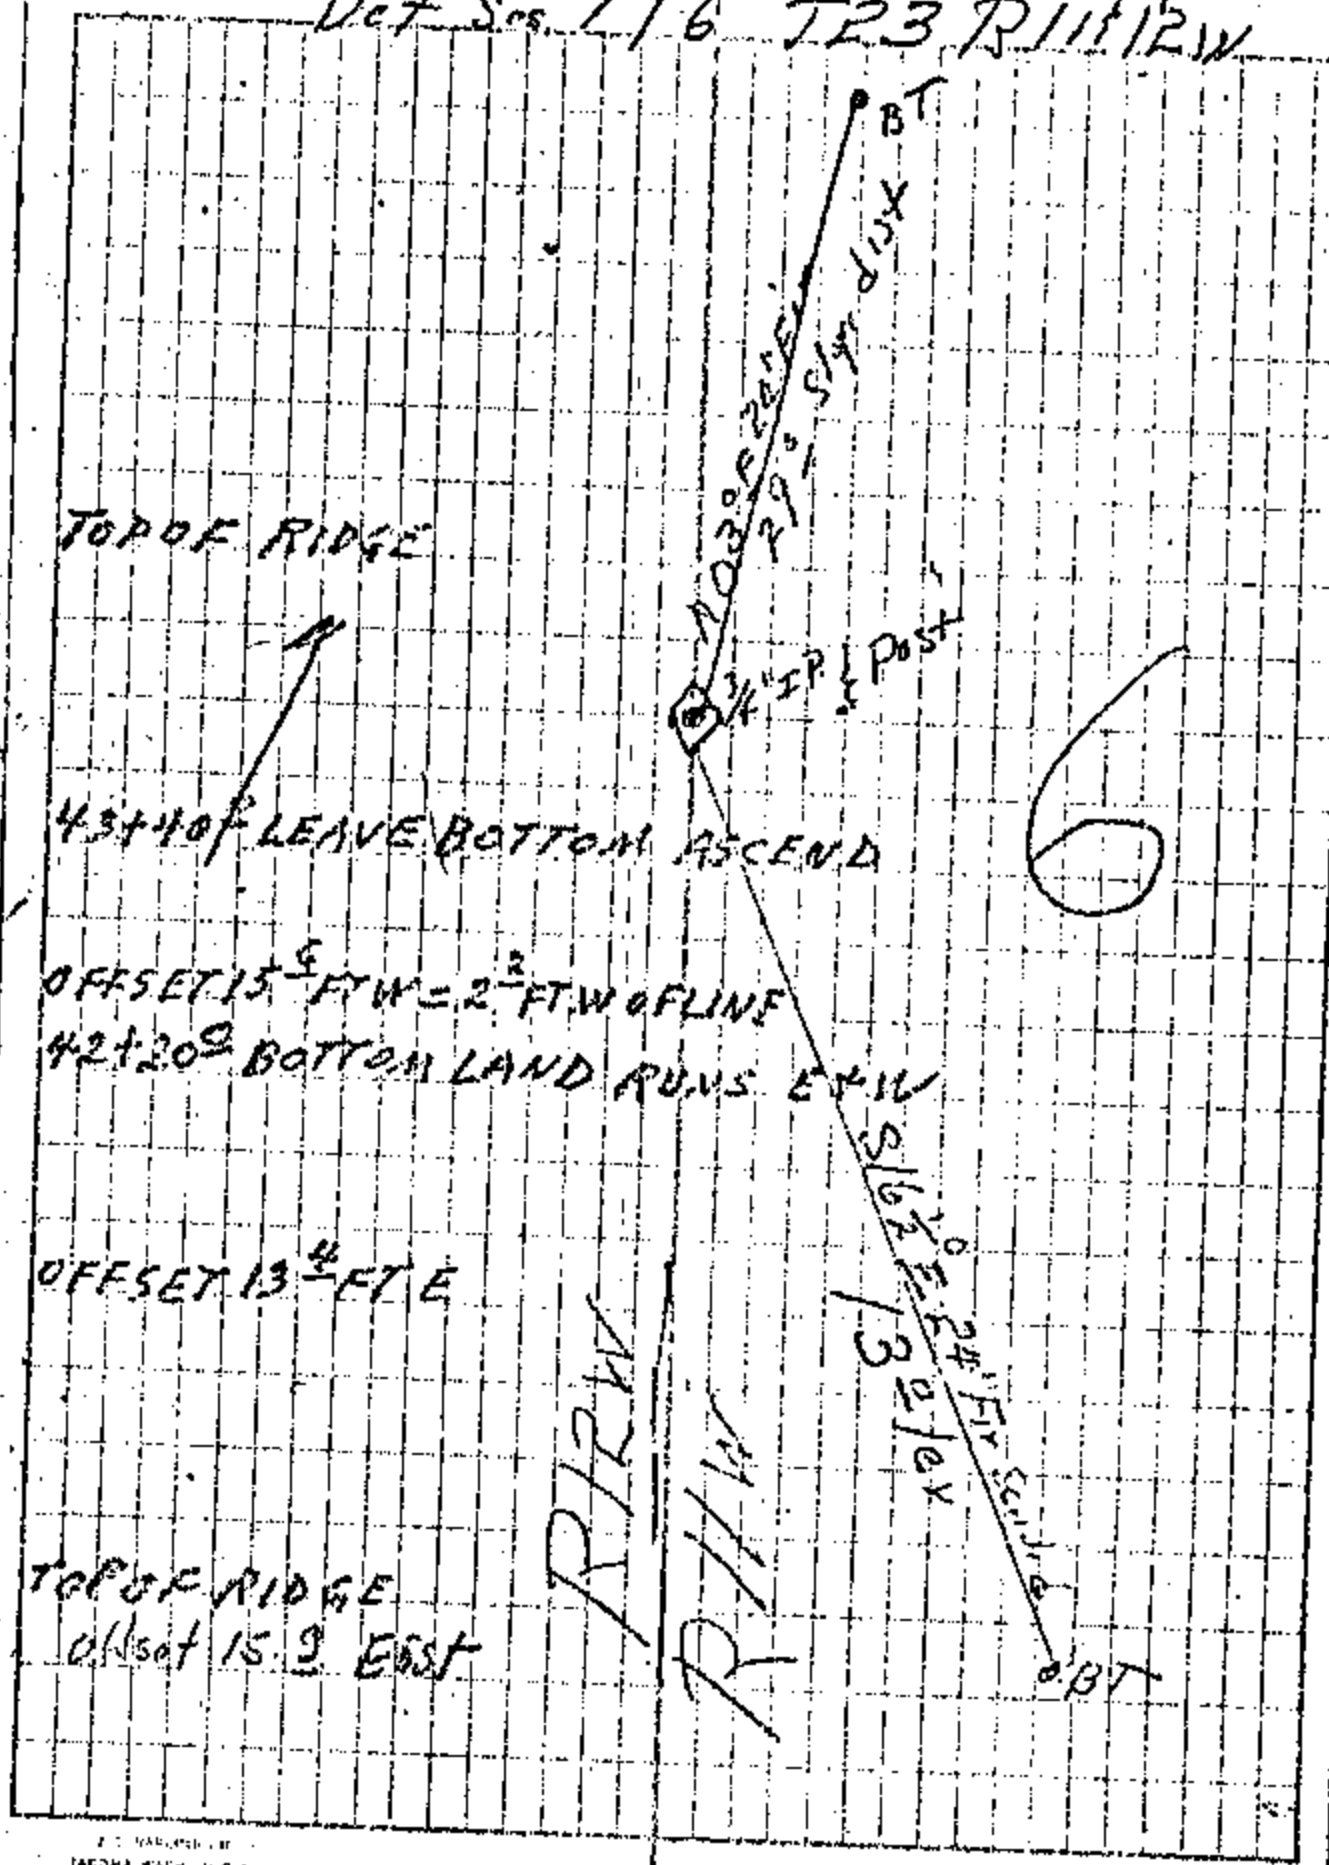 T23 R11&12W
BT
29 slope dist
TOP OF RIDGE
N
3/4" IP & Post
6
43+40 LEAVE BOTTOM ASCEND
OFFSET 15 FT W = 2² FT W OF LINE
42+20⁰ BOTTOM LAND RUNS E & W
S16½°E 24" Fir
13⁰ lev
OFFSET 13⁴ FT E
R12W
R11W
TOP OF RIDGE
Offset 15.9 East
BT